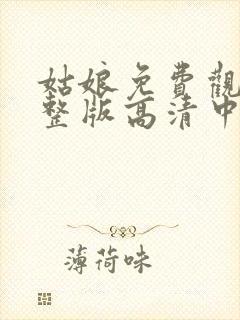 姑娘免費觀
整版高清中
薄荷味